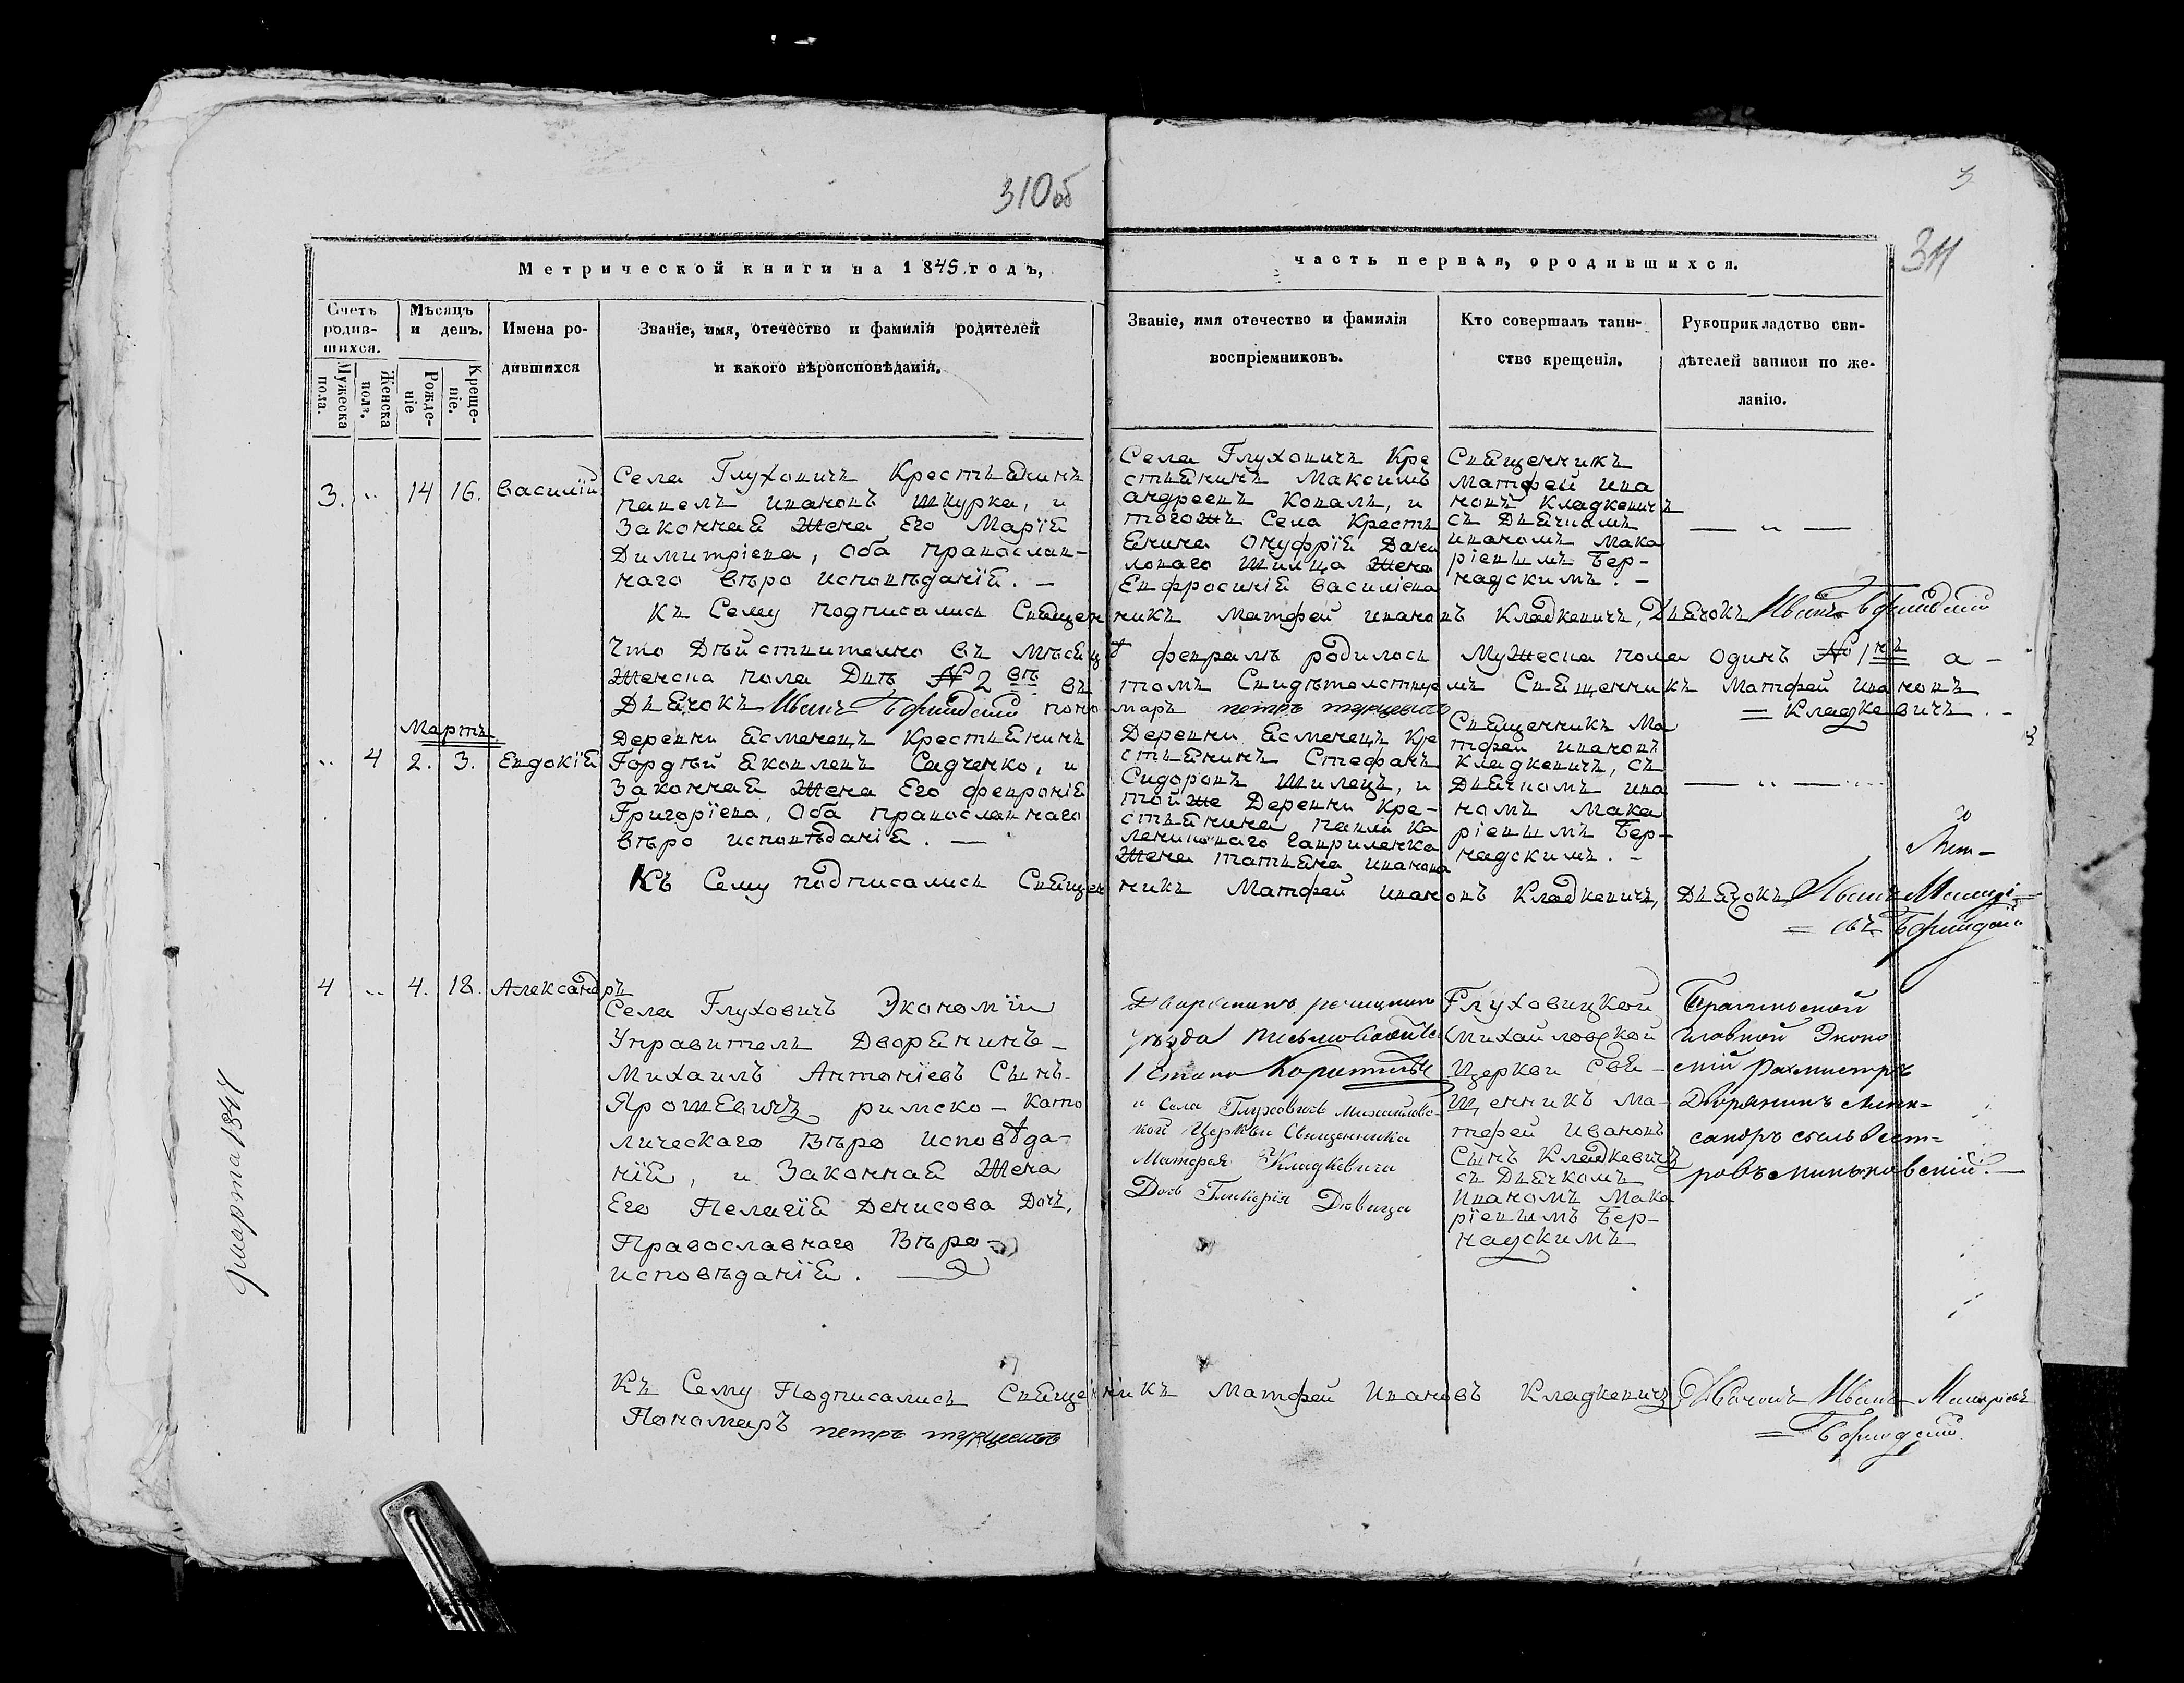 310об
3
311
Метрической книги на 1845 годъ,
часть первая, о родившихся.
Счетъ родив-
шихся.
Мужеска пола.
Женска пола.
Мѣсяцъ и день.
Рожде-
ніе
Креще-
ніе.
Имена ро-
дившихся
Званіе, имя, отечество и фамилія родителей
и какого вѣроисповѣданія.
Званіе, имя отечество и фамилія
воспріемниковъ.
Кто совершалъ таин-
ство крещенія.
Рукоприкладство сви-
дѣтелей записи по же-
ланію.
3. „ 14 16. Василій
Села Глуховичъ Крестьянинъ
павелъ ивановъ шкурка, и
Законная Жена Его Марія
Димитріева, Оба православ-
наго вѣро исповѣданія. —
Села Глуховичъ Кре
стьянинъ Максимъ
андреевъ Коваль, и
тогожъ Села Крестъ
янина Онуфрія Дани
ловаго Шилца Жена
Евфросинія василіева
Священникъ
матфей ива
новъ Кладкевичъ
съ Дьячкомъ
иваномъ мака
ріевымъ Бер-
надскимъ. —
— „ —
Къ Сему подписались Священникъ Матфей ивановъ Кладкевичъ, Дьячокъ Иванъ Бернадскій
что Дѣйствително въ мѣсяцѣ февралѣ родилось мужеска пола одинъ № 1нъ а —
Женска пола Двѣ № 2вѣ въ томъ Свидѣтелствуемъ Священникъ Матфей ивановъ
= Кладкевичъ. —
Дьячокъ Иванъ Бернадскій пономарь петръ
Мартъ
„ 4 2. 3. Евдокія
Деревни Ясменецъ Крестьянинъ
Гордѣй яковлевъ Сидченко, и
Законная Жена Его февронія
Григоріева, Оба православнаго
вѣро исповѣданія. —
Деревни Ясменецъ Кре
стьянинъ Стефанъ
Сидоровъ шилецъ, и
тойже Деревни Кре-
стьянина павла Ка
гавриленка
Жена татьяна иванова
Священникъ Ма
тфей ивановъ
Кладкевичъ, съ
Дьячкомъ ива
номъ Мака
ріевымъ Бер-
надскимъ. —
— „ —
Къ Сему подписались Священникъ Матфей ивановъ Кладкевичъ, Дьячокъ Иванъ Макарі-
= евъ Бернадскій
4 „ 4. 18. Александръ
Села Глуховичъ Экономіи
Управитель Дворянинъ —
Михаилъ Антоніевъ Сынъ
Ярошевичъ римско — като
лическаго Вѣро исповѣда-
нія, и Законная Жена
Его Пелагія Денисова Дочъ,
Православнаго Вѣро —
исповѣданія. —
Дворянинъ
уѣзда
1 Стана
и Села Глуховичъ Михайловс-
кой Церкви Священника
Матфея Кладкевича
Дочь Гликерія Дѣвица
Глуховицкой
Михайловской
Церкви Свя —
щенникъ Ма-
тфей Ивановъ
Сынъ Кладкевичъ
съ Дьячкомъ
Иваномъ Мака
ріевымъ Бер-
надскимъ
Брагинской
главной Эконо
міи
Дворянинъ Алек-
сандръ сынъ
Къ Сему Подписались Священникъ Матфей Ивановъ Кладкевичъ Дьячокъ Иванъ Макаріевъ
= Бернадскій.
Пономарь петръ
марта 1844